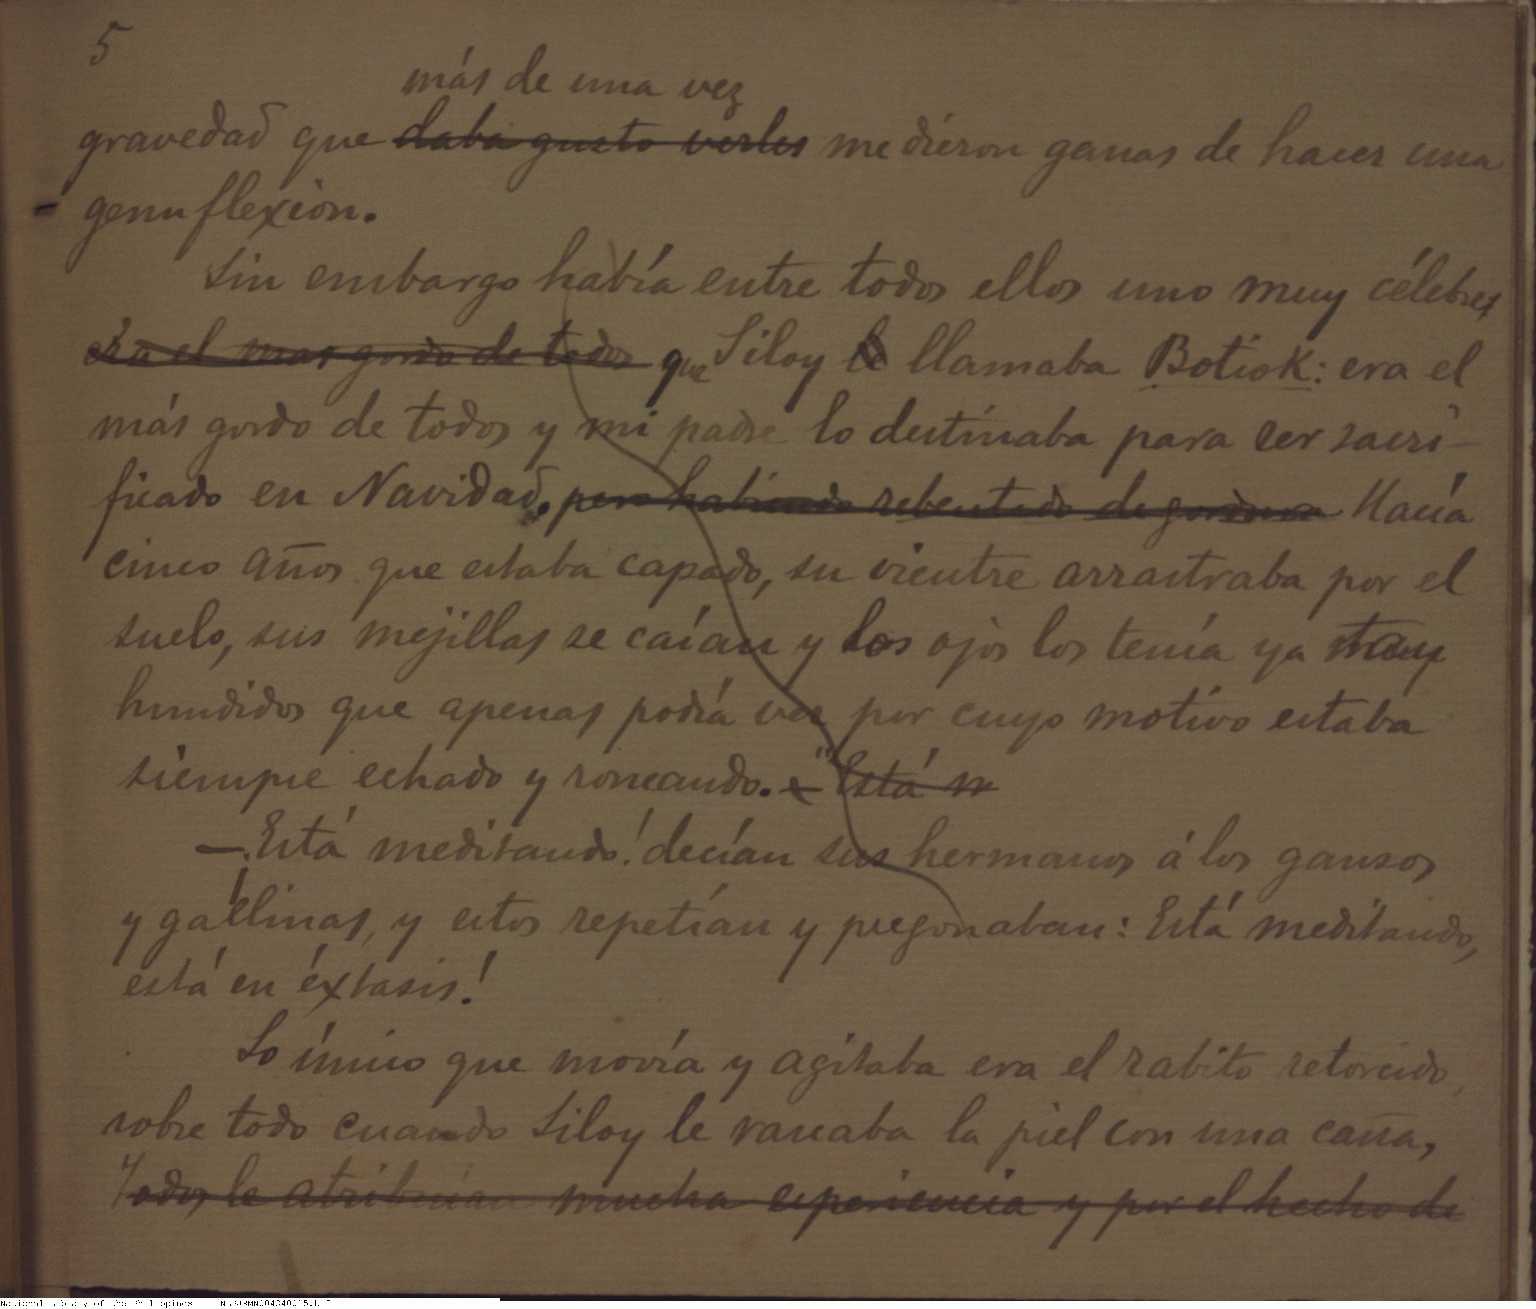 5
más de una vez
gravedad que daba gusto verles me dieron ganas de hacer una
genuflexion.
Sin embargo había entre todos ellos uno muy célebre,
era el mas gordo de todos que Siloy le llamaba Botiok: era el
más gordo de todos y mi padre lo destinaba para ser sacri-
ficado en Navidad. pero habiendo rebentado de gordura Hacía
cinco años que estaba capado, su vientre arrastraba por el
suelo, sus mejillas se caían y los ojos los tenía ya muy
hundidos que apenas podía ver por cuyo motivo estaba
siempre echado y roncando. "Está m
—Está meditando! decían sus hermanos á los gansos
y gallinas, y estos repetían y pregonaban: Está meditando,
está en éxtasis!
Lo único que movía y agitaba era el rabito retorcido,
sobre todo cuando Siloy le rascaba la piel con una caña,
Todos le atribuían mucha esperiencia y por el hecho de
National Library of the Philippines